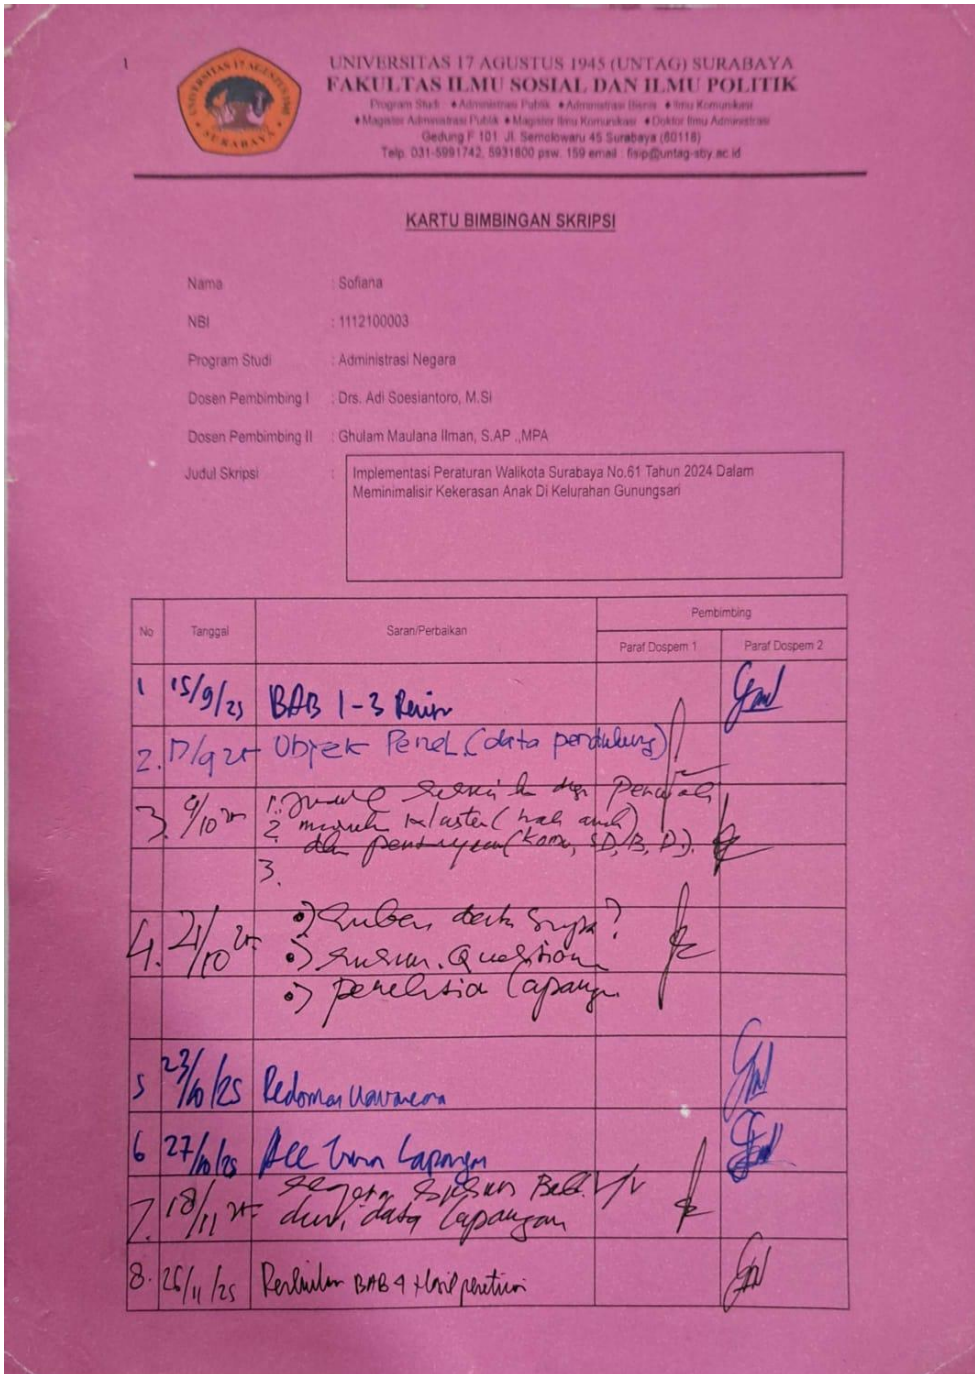 1
UNIVERSITAS 17 AGUSTUS 1945
SURABAYA
UNIVERSITAS 17 AGUSTUS 1945 (UNTAG) SURABAYA
FAKULTAS ILMU SOSIAL DAN ILMU POLITIK
Program Studi : ♦Administrasi Publik ♦Administrasi Bisnis ♦Ilmu Komunikasi
♦Magister Administrasi Publik ♦Magister Ilmu Komunikasi ♦Doktor Ilmu Administrasi
Gedung F 101 Jl. Semolowaru 45 Surabaya (60118)
Telp. 031-5991742, 5931800 psw. 159 email : fisip@untag-sby.ac.id
KARTU BIMBINGAN SKRIPSI
Nama : Sofiana
NBI : 1112100003
Program Studi : Administrasi Negara
Dosen Pembimbing I : Drs. Adi Soesiantoro, M.Si
Dosen Pembimbing II : Ghulam Maulana Ilman, S.AP .,MPA
Judul Skripsi : Implementasi Peraturan Walikota Surabaya No.61 Tahun 2024 Dalam
Meminimalisir Kekerasan Anak Di Kelurahan Gunungsari
No Tanggal Saran/Perbaikan Pembimbing
Paraf Dospem 1 Paraf Dospem 2
1 15/9/25 BAB 1-3 Revisi
2. 17/9 25 Objek Penel. (data pendukung)
3. 9/10 25 1. Judul
2 klaster (hak anak)
3.
4. 21/10 25
•) susun. Question
•) penelitia lapangan
5 23/10/25 Pedoman Wawancara
6 27/10/25 Acc Turun Lapangan
7. 18/11 25 segera susun Bab. IV
data lapangan
8. 26/11/25 BAB 4 Hasil